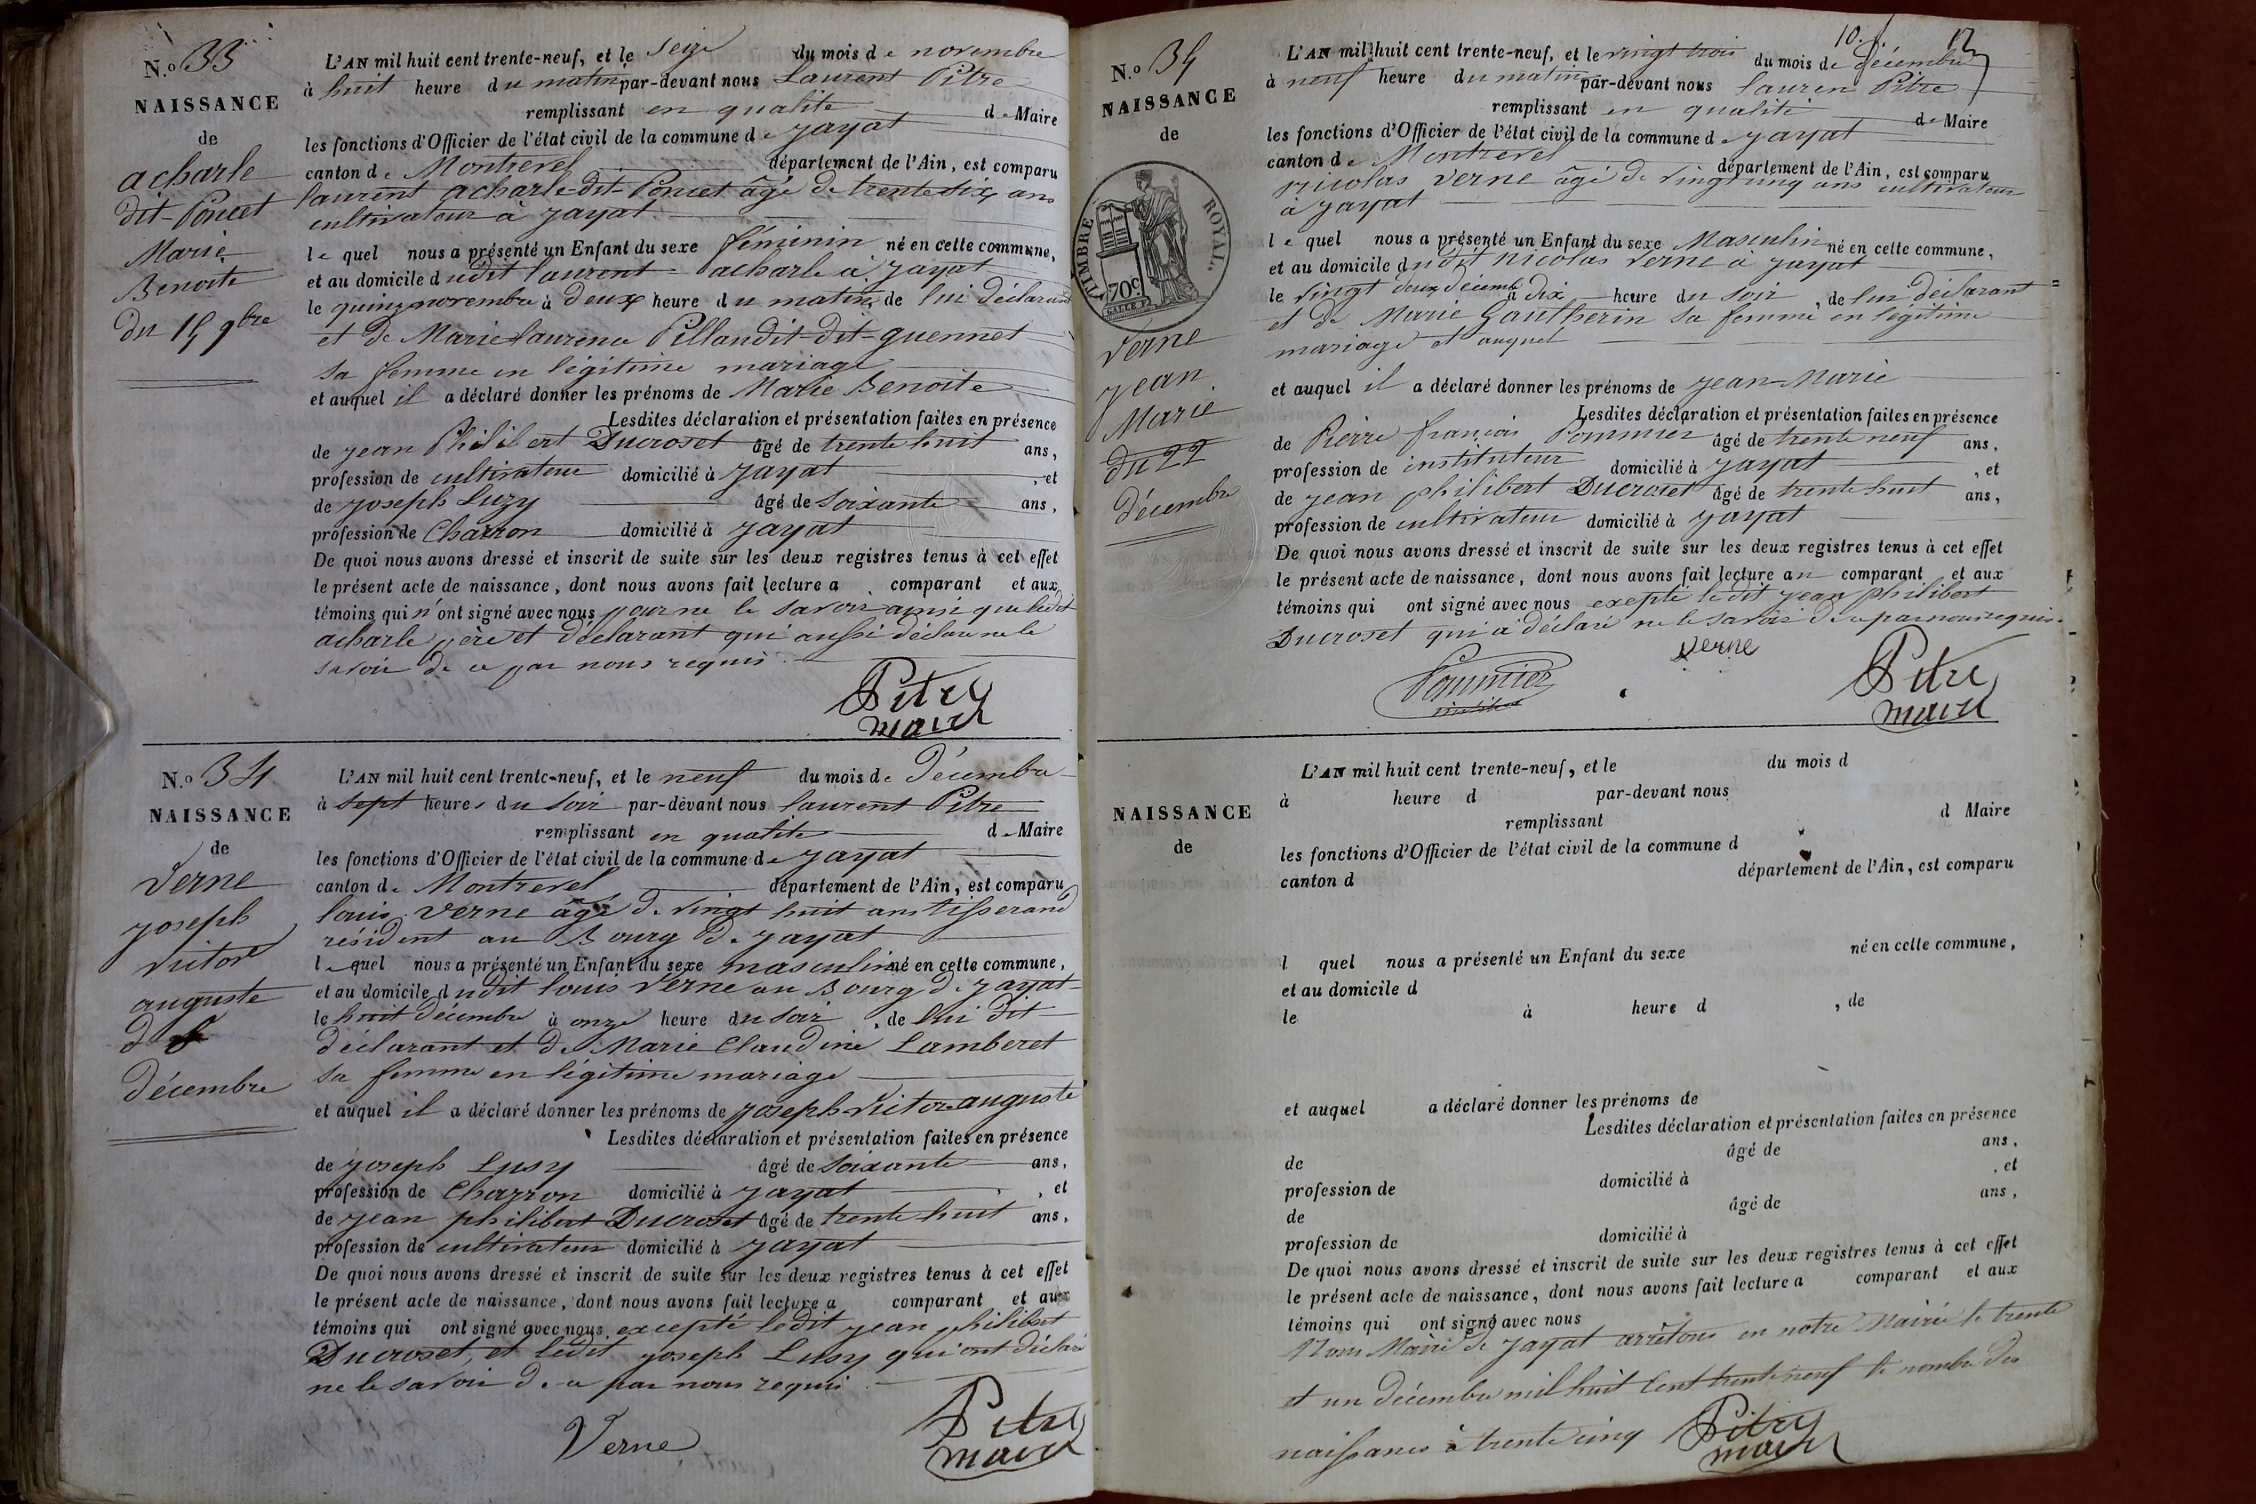 N.º 33
NAISSANCE
de
acharle
dit-Poncet
Marie
Benoite
du 15 9bre
L'AN mil huit cent trente-neuf, et le seize du mois de novembre
à huit heure du matin par-devant nous Laurent Pitre
remplissant en qualité de Maire
les fonctions d'Officier de l'état civil de la commune de Jayat
canton de Montrevel département de l'Ain, est comparu
laurent acharle-dit-Poncet âgé de trente six ans
cultivateur à Jayat
lequel nous a présenté un Enfant du sexe féminin né en cette commune,
et au domicile dudit laurent acharle à Jayat
le quinze novembre à deux heure du matin de lui déclarant
et de Marie laurence Pillandit-dit-guennet
sa femme en légitime mariage
et auquel il a déclaré donner les prénoms de Marie Benoite
Lesdites déclaration et présentation faites en présence
de jean Philibert Ducroset âgé de trente huit ans,
profession de cultivateur domicilié à Jayat , et
de joseph Luzy âgé de soixante ans,
profession de Charron domicilié à Jayat
De quoi nous avons dressé et inscrit de suite sur les deux registres tenus à cet effet
le présent acte de naissance, dont nous avons fait lecture a comparant et aux
témoins qui n'ont signé avec nous pour ne le savoir ainsi que ledit
acharle père et déclarant qui aussi déclare ne le
savoir de ce par nous requis
Pitre
maire
N.º 34
NAISSANCE
de
Verne
joseph
victor
auguste
d 8
décembre
L'AN mil huit cent trente-neuf, et le neuf du mois de Décembre
à sept heures du soir par-devant nous laurent Pitre
remplissant en qualité de Maire
les fonctions d'Officier de l'état civil de la commune de Jayat
canton de Montrevel département de l'Ain, est comparu
louis Verne âgé de vingt huit ans tisserand
résident au Bourg de Jayat
lequel nous a présenté un Enfant du sexe masculin né en cette commune,
et au domicile dudit louis Verne au Bourg de Jayat
le huit décembre à onze heure du soir , de lui dit
déclarant et de Marie Claudine Lamberet
sa femme en légitime mariage
et auquel il a déclaré donner les prénoms de joseph-victor auguste
Lesdites déclaration et présentation faites en présence
de joseph Lusy âgé de soixante ans,
profession de Charron domicilié à Jayat , et
de jean philibert Ducroset âgé de trente huit ans,
profession de cultivateur domicilié à Jayat
De quoi nous avons dressé et inscrit de suite sur les deux registres tenus à cet effet
le présent acte de naissance, dont nous avons fait lecture a comparant et aux
témoins qui ont signé avec nous excepté ledit jean philibert
Ducroset, et ledit joseph Lusy qui ont déclaré
ne le savoir de ce par nous requis
Verne
Pitre
maire
10. 12
N.º 34
NAISSANCE
de
TIMBRE ROYAL.
70c
Verne
jean
Marie
du 22
décembre
L'AN mil huit cent trente-neuf, et le vingt trois du mois de décembre
à neuf heure du matin par-devant nous lauren Pitre
remplissant en qualité de Maire
les fonctions d'Officier de l'état civil de la commune de Jayat
canton de Montrevel département de l'Ain, est comparu
nicolas Verne âgé de vingt cinq ans cultivateur
à Jayat
lequel nous a présenté un Enfant du sexe Masculin né en cette commune,
et au domicile dudit nicolas Verne à Jayat
le vingt deux décembre à dix heure du soir , de lui déclarant
et de Marie Gautherin sa femme en légitime
mariage et auquel
et auquel il a déclaré donner les prénoms de jean-Marie
Lesdites déclaration et présentation faites en présence
de Pierre françois Pommier âgé de trente neuf ans,
profession de instituteur domicilié à Jayat , et
de jean philibert Ducroset âgé de trente huit ans,
profession de cultivateur domicilié à Jayat
De quoi nous avons dressé et inscrit de suite sur les deux registres tenus à cet effet
le présent acte de naissance, dont nous avons fait lecture au comparant et aux
témoins qui ont signé avec nous exepté ledit jean philibert
Ducroset qui a déclaré ne le savoir de ce par nous requis
verne
Pommier
Pitre
maire
NAISSANCE
de
L'AN mil huit cent trente-neuf, et le du mois d
à heure d par-devant nous
remplissant d Maire
les fonctions d'Officier de l'état civil de la commune d
canton d département de l'Ain, est comparu
l quel nous a présenté un Enfant du sexe né en cette commune,
et au domicile d
le à heure d , de
et auquel a déclaré donner les prénoms de
Lesdites déclaration et présentation faites en présence
de âgé de ans,
profession de domicilié à , et
de âgé de ans,
profession de domicilié à
De quoi nous avons dressé et inscrit de suite sur les deux registres tenus à cet effet
le présent acte de naissance, dont nous avons fait lecture a comparant et aux
témoins qui ont signé avec nous
Nous Maire de Jayat arrêtons en notre Mairie le trente
et un décembre mil huit cent trente neuf le nombre des
naissances à trente cinq
Pitre
maire